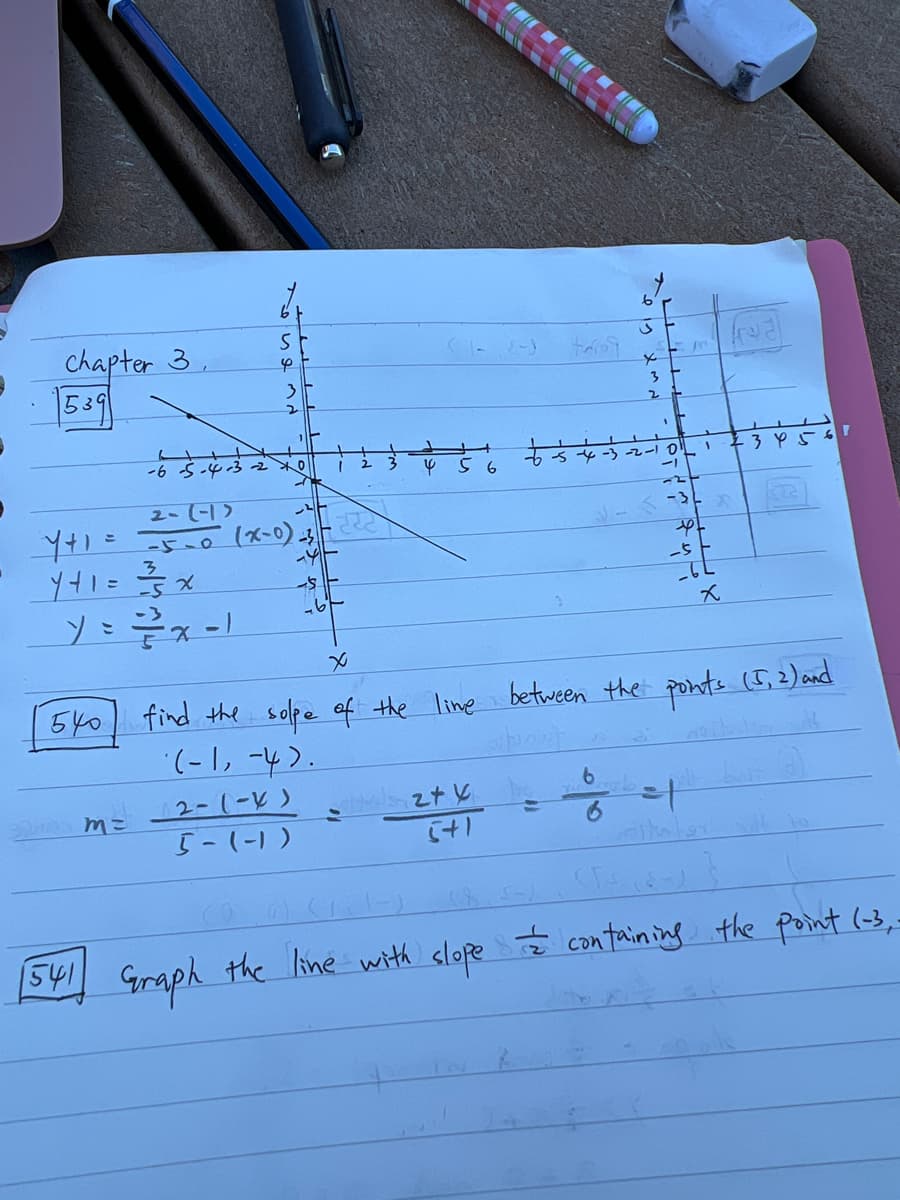 Chapter 3.
539
y
6
5
4
3
2
1
-6 -5 -4 -3 -2 -1 0 1 2 3 4 5 6
-1
-2
-3
-4
-5
-6
x
y
6
5
4
3
2
1
-6 -5 -4 -3 -2 -1 0 1 2 3 4 5 6
-1
-2
-3
-4
-5
-6
x
y+1 = 2-(-1) / -5-0 (x-0)
y+1 = 3/-5 x
y = -3/5 x -1
540 find the solpe of the line between the points (5,2) and
(-1, -4).
m= 2-(-4) / 5-(-1) = 2+4 / 5+1 = 6/6 =1
541 Graph the line with slope 1/2 containing the point (-3,-